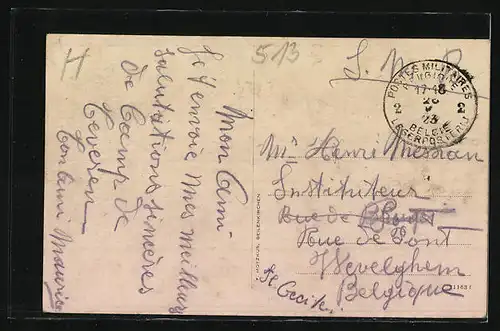 H
513
S. M.
POSTES MILITAIRES
BELGIQUE
17-18
2 28 2
V
23
BELGIË
LEGERPOSTERIJ
Mon Ami
Je t'envoie mes meilleurs
salutations sincères
du Camp de
Teveren
Ton ami Maurice
Mr Henri Messian
Instituteur
Rue de
Rue de Pont
Wevelghem
Belgique
St. Cecile.
HOTZHUR, GEILENKIRCHEN